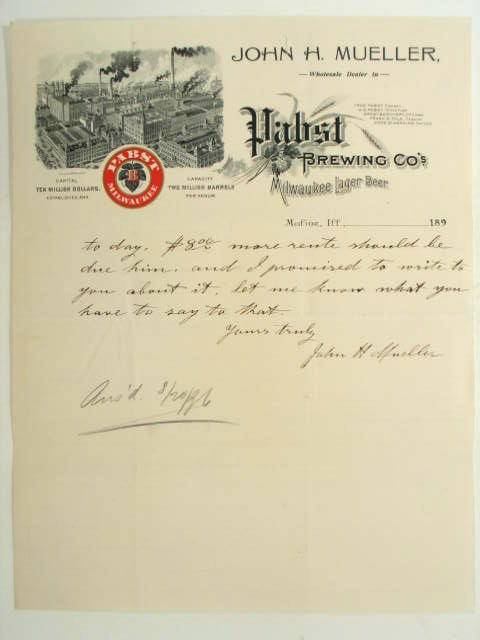 JOHN H. MUELLER,
Wholesale Dealer in
Pabst
BREWING CO'S
Milwaukee Lager Beer
PABST
B
MILWAUKEE
CAPITAL
TEN MILLION DOLLARS.
CAPACITY
TWO MILLION BARRELS
PER ANNUM.
189
to day. $8.00 more rente should be
due him. and I promised to write to
you about it, let me know what you
have to say to that.
Yours truly
John H Mueller
Ans'd. 8/20/96